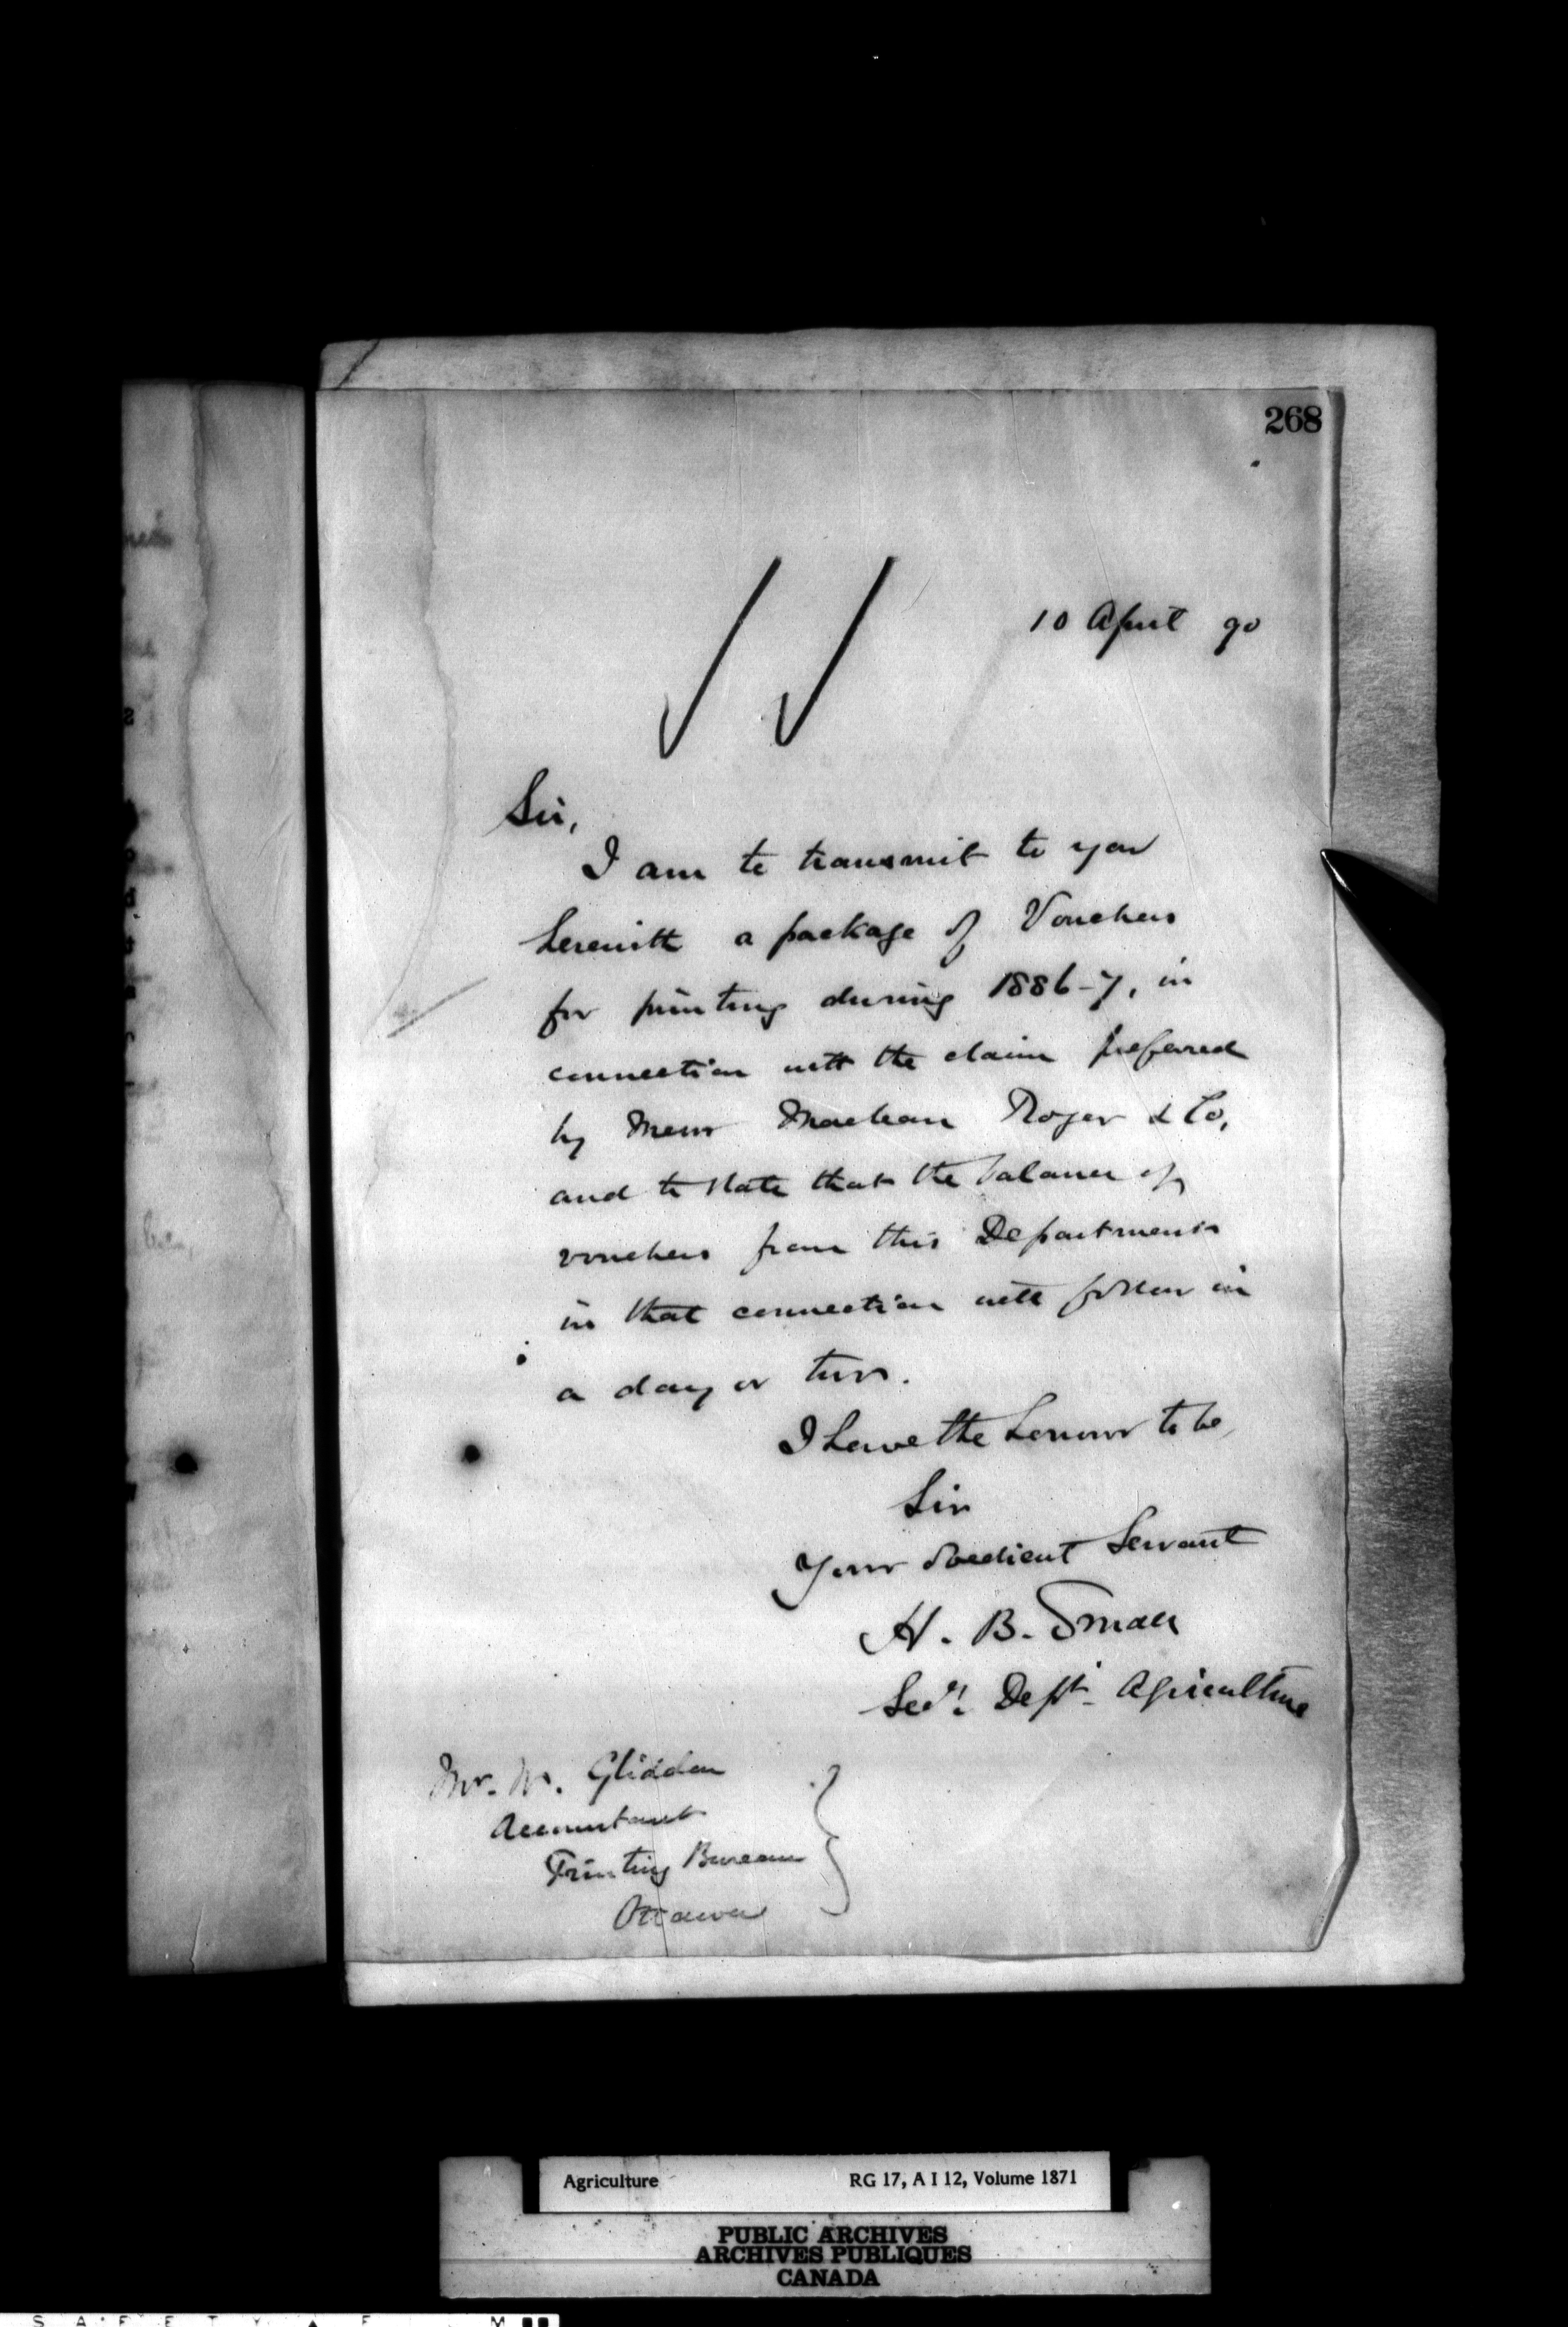 268
10 April 90
Sir,
I am to transmit to you
herewith a package of Vouchers
for printing during 1886-7, in
connection with the claim preferred
by Messrs Maclean Roger & Co,
and to state that the balance of
vouchers from this Department
in that connection will follow in
a day or two.
I have the honour to be,
Sir
Your obedient Servant
H. B. Small
Secy. Dept. Agriculture
Mr. W. Gliddon
Accountant
Printing Bureau
Ottawa
Agriculture RG 17, A I 12, Volume 1871
PUBLIC ARCHIVES
ARCHIVES PUBLIQUES
CANADA